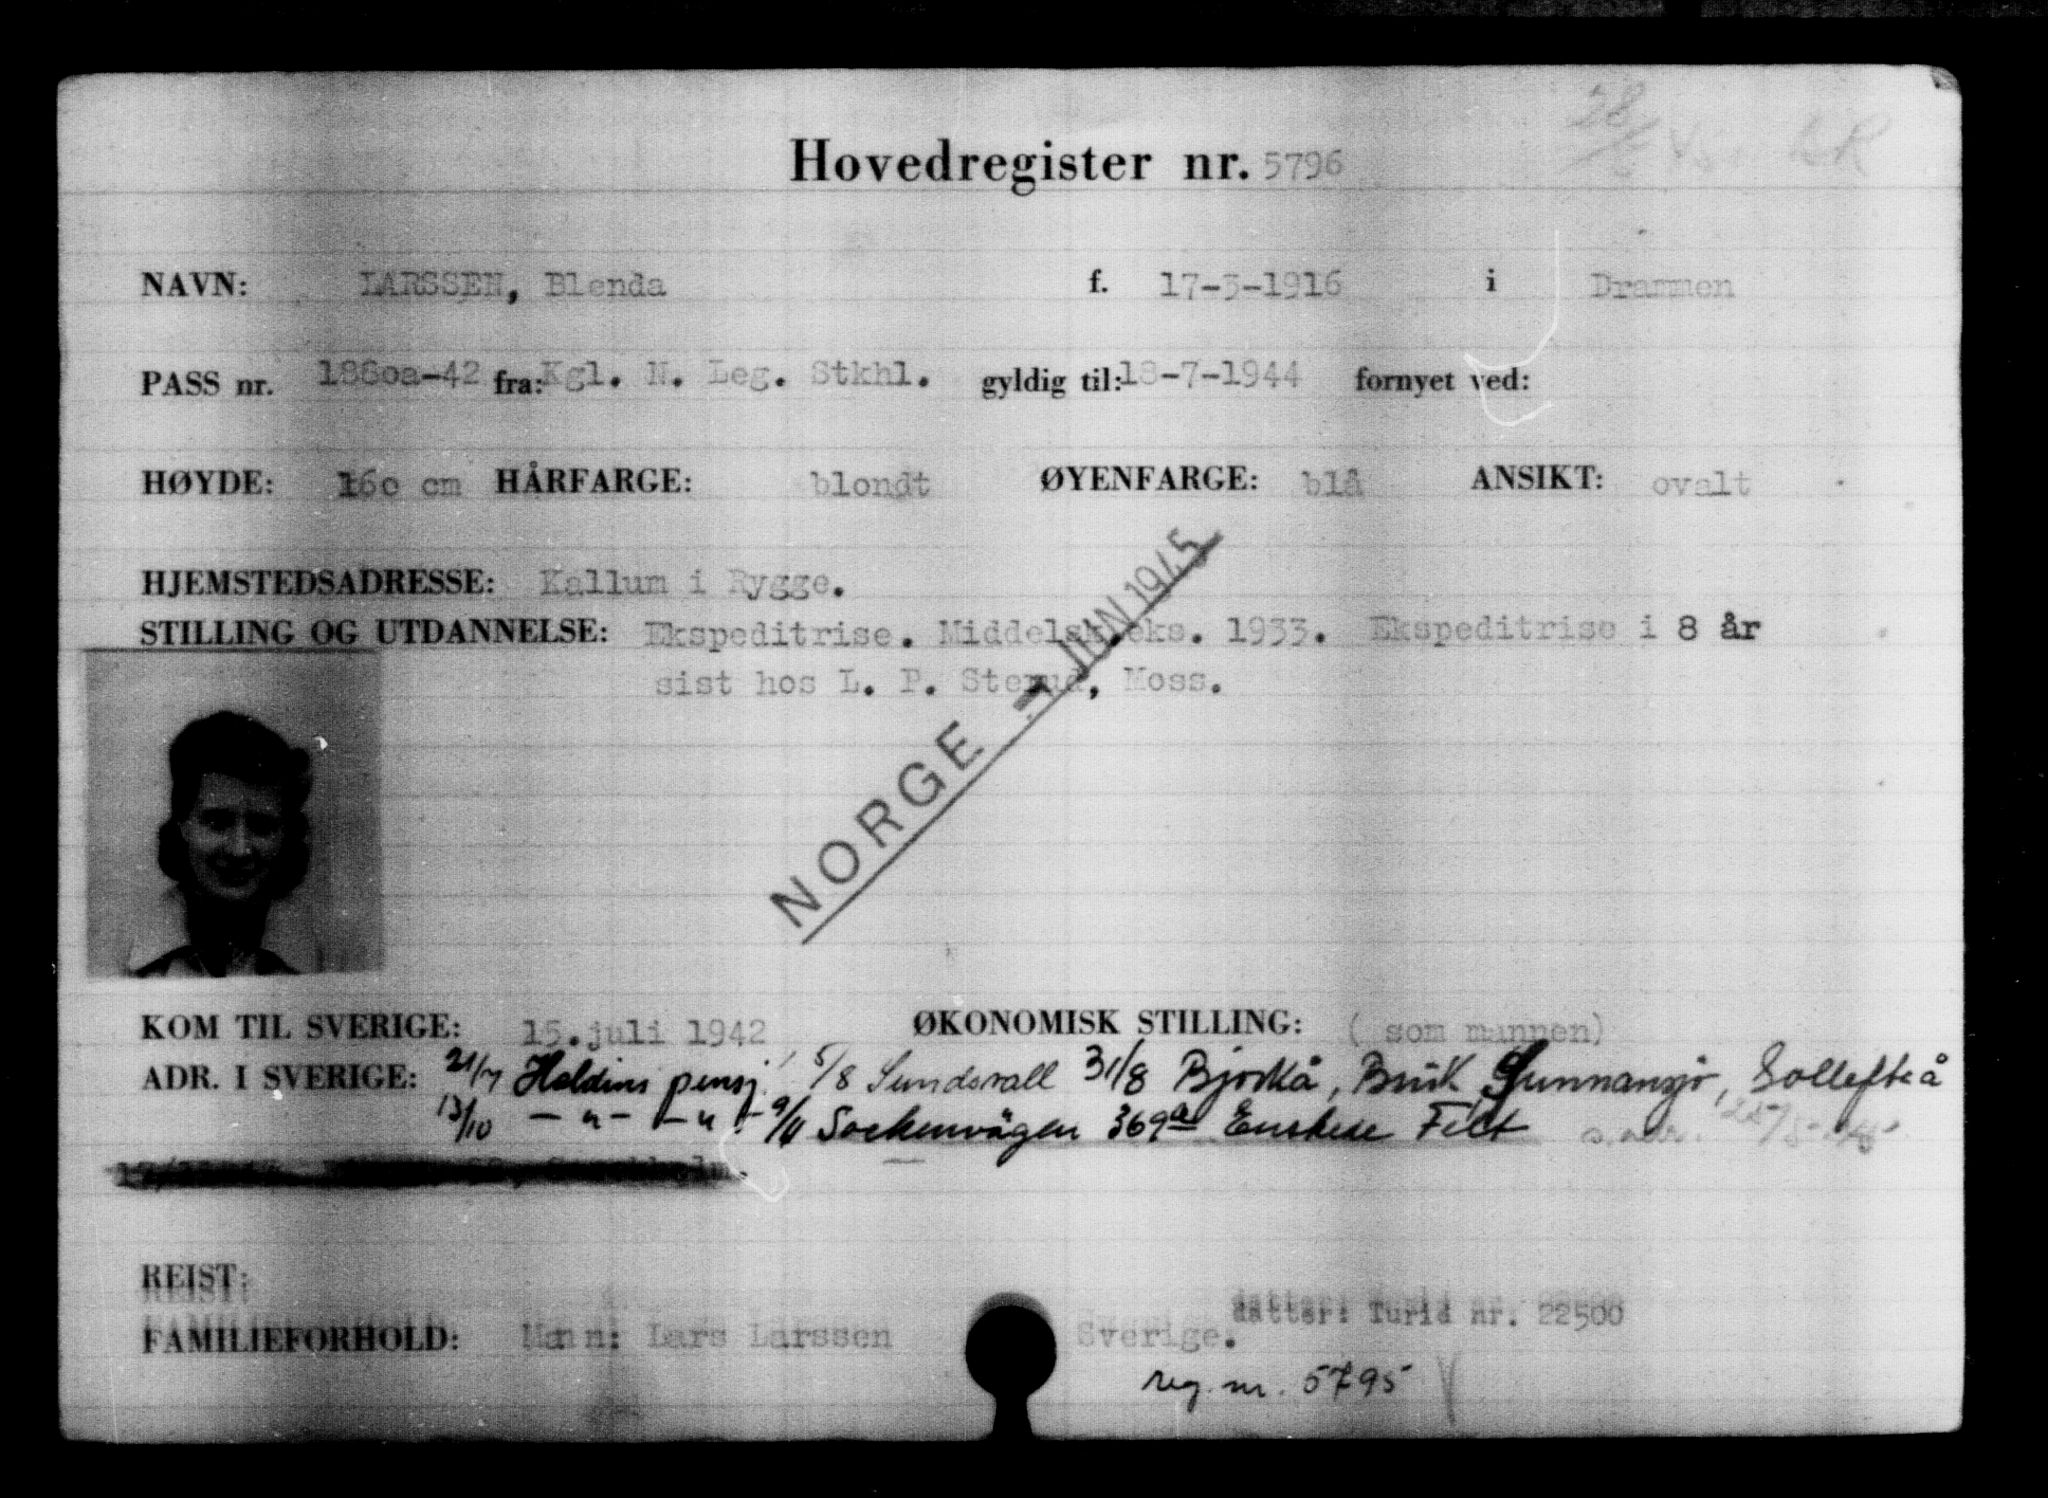 Hovedregister nr. 5796
NAVN: LARSSEN, Blenda f. 17-3-1916 i Drammen
PASS nr. 1880a-42 fra: Kgl. N. Leg. Stkhl. gyldig til: 18-7-1944 fornyet ved:
HØYDE: 160 cm HÅRFARGE: blondt ØYENFARGE: blå ANSIKT: ovalt
HJEMSTEDSADRESSE: Kallum i Rygge.
STILLING OG UTDANNELSE: Ekspeditrise. Middelsk.eks. 1933. Ekspeditrise i 8 år
sist hos L. P. Sterud, Moss.
NORGE - JUN 1945
KOM TIL SVERIGE: 15.juli 1942 ØKONOMISK STILLING: (som mannen)
ADR. I SVERIGE: 21/7 Holdins pensj. 5/8 Sundsvall 31/8 Bjorkå, Bruk Gunnansjö, Sollefteå
13/10 -"- -"- 9/11 Sockenvägen 369a Enskede Felt
REIST:
datter: Turid nr. 22500
FAMILIEFORHOLD: Mann: Lars Larssen Sverige.
reg. nr. 5795